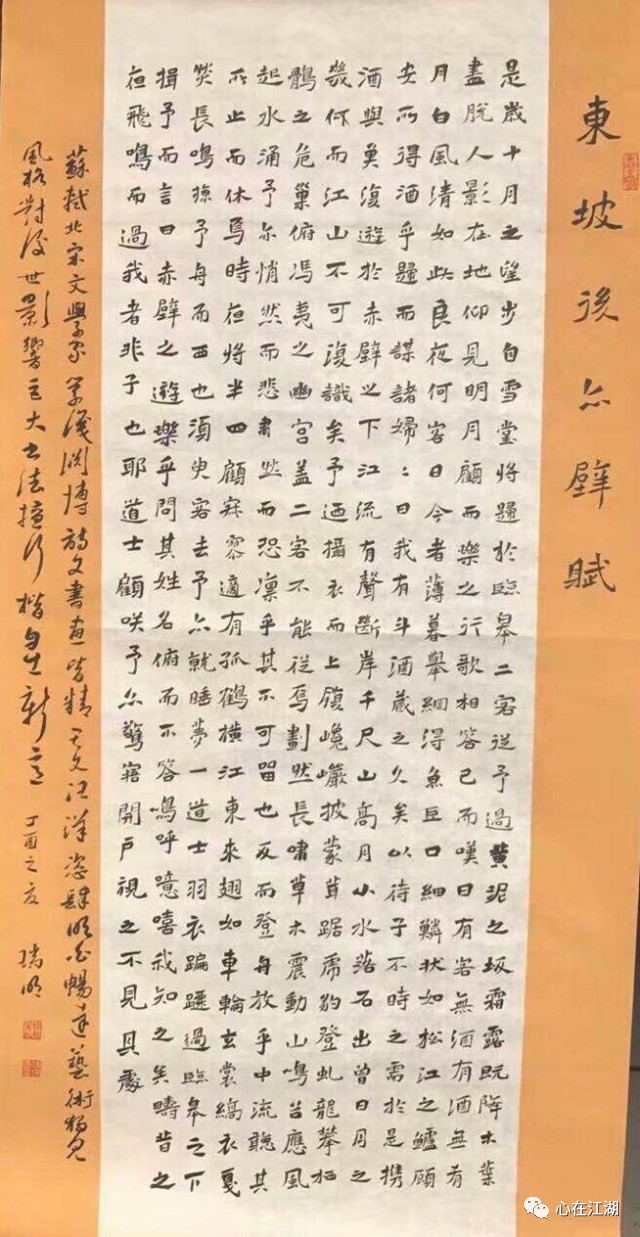 東坡後赤壁賦
是歲十月之望步自雪堂將歸於臨皋二客從予過黃泥之坂霜露既降木葉
盡脫人影在地仰見明月顧而樂之行歌相答已而嘆曰有客無酒有酒無肴
月白風清如此良夜何客曰今者薄暮舉網得魚巨口細鱗狀如松江之鱸顧
安所得酒乎歸而謀諸婦〻曰我有斗酒藏之久矣以待子不時之需於是攜
酒與魚復遊於赤壁之下江流有聲斷岸千尺山高月小水落石出曾日月之
幾何而江山不可復識矣予迺攝衣而上履巉巖披蒙茸踞虎豹登虬龍攀栖
鶻之危巢俯馮夷之幽宮蓋二客不能從焉劃然長嘯草木震動山鳴谷應風
起水涌予亦悄然而悲肅然而恐凜乎其不可留也反而登舟放乎中流聽其
所止而休焉時夜將半四顧寂寥適有孤鶴橫江東來翅如車輪玄裳縞衣戛
然長鳴掠予舟而西也須臾客去予亦就睡夢一道士羽衣蹁躚過臨皋之下
揖予而言曰赤壁之遊樂乎問其姓名俯而不答嗚呼噫嘻我知之矣疇昔之
夜飛鳴而過我者非子也耶道士顧笑予亦驚寤開戶視之不見其處
蘇軾北宋文學家學識淵博詩文書畫皆精其文汪洋恣肆明白暢達藝術獨具
風格對後世影響巨大書法擅行楷自出新意 丁酉之夏 瑞明
心在江湖